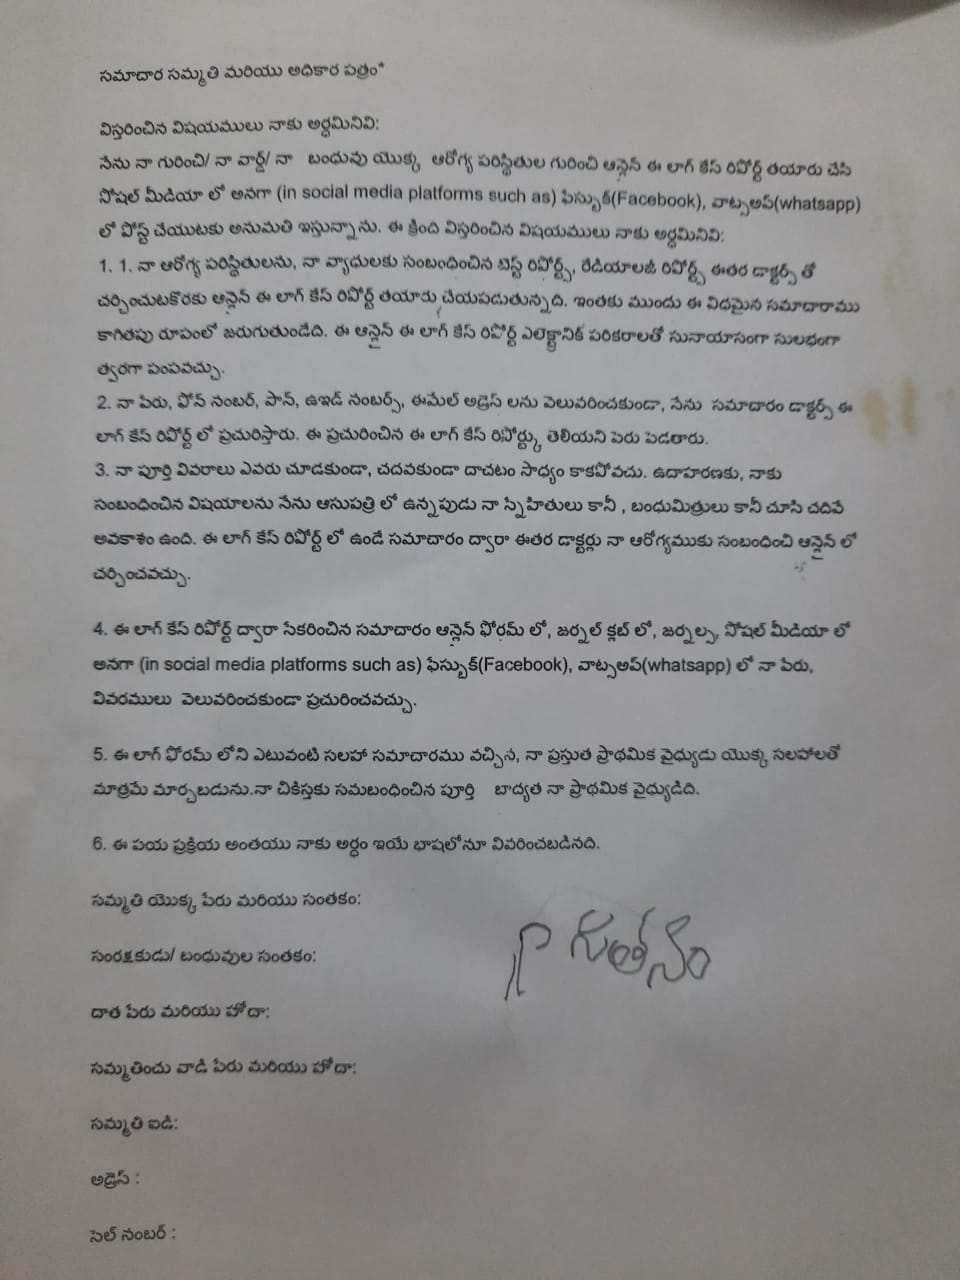 సమాచార సమ్మతి మరియు అధికార పత్రం*
విస్తరించిన విషయములు నాకు అర్ధమినివి:
నేను నా గురించి/ నా వార్డ్/ నా బంధువు యొక్క ఆరోగ్య పరిస్థితుల గురించి ఆన్లైన్ ఈ లాగ్ కేస్ రిపోర్ట్ తయారు చేసి
సోషల్ మీడియా లో అనగా (in social media platforms such as) ఫేస్బుక్(Facebook), వాట్సఅప్(whatsapp)
లో పోస్ట్ చేయుటకు అనుమతి ఇస్తున్నాను. ఈ క్రింది విస్తరించిన విషయములు నాకు అర్ధమినివి:
1. 1. నా ఆరోగ్య పరిస్థితులను, నా వ్యాధులకు సంబంధించిన టెస్ట్ రిపోర్ట్స్, రేడియాలజీ రిపోర్ట్స్ ఈతర డాక్టర్స్ తో
చర్చించుటకొరకు ఆన్లైన్ ఈ లాగ్ కేస్ రిపోర్ట్ తయారు చేయపడుతున్నది. ఇంతకు ముందు ఈ విధమైన సమాచారాము
కాగితపు రూపంలో జరుగుతుండేది. ఈ ఆన్లైన్ ఈ లాగ్ కేస్ రిపోర్ట్ ఎలెక్ట్రానిక్ పరికరాలతో సునాయాసంగా సులభంగా
త్వరగా పంపవచ్చు.
2. నా పేరు, ఫోన్ నంబర్, పాన్, ఉఇడ్ నంబర్స్, ఈమేల్ అడ్రెస్ లను వెలువరించకుండా, నేను సమాచారం డాక్టర్స్ ఈ
లాగ్ కేస్ రిపోర్ట్ లో ప్రచురిస్తారు. ఈ ప్రచురించిన ఈ లాగ్ కేస్ రిపోర్ట్కు తెలియని పెరు పెడతారు.
3. నా పూర్తి వివరాలు ఎవరు చూడకుండా, చదవకుండా దాచటం సాధ్యం కాకపోవచు. ఉదాహరణకు, నాకు
సంబంధించిన విషయాలను నేను ఆసుపత్రి లో ఉన్నపుడు నా స్నేహితులు కానీ , బంధుమిత్రులు కానీ చూసి చదివే
అవకాశం ఉంది. ఈ లాగ్ కేస్ రిపోర్ట్ లో ఉండే సమాచారం ద్వారా ఈతర డాక్టర్లు నా ఆరోగ్యముకు సంబంధించి ఆన్లైన్ లో
చర్చించవచ్చు.
4. ఈ లాగ్ కేస్ రిపోర్ట్ ద్వారా సేకరించిన సమాచారం ఆన్లైన్ ఫోరమ్ లో, జర్నల్ క్లబ్ లో, జర్నల్స, సోషల్ మీడియా లో
అనగా (in social media platforms such as) ఫేస్బుక్(Facebook), వాట్సఅప్(whatsapp) లో నా పేరు,
వివరములు వెలువరించకుండా ప్రచురించవచ్చు.
5. ఈ లాగ్ ఫోరమ్ లోని ఎటువంటి సలహా సమాచారము వచ్చిన, నా ప్రస్తుత ప్రాథమిక వైధ్యుడు యొక్క సలహాలతో
మాత్రమే మార్చబడును.నా చికిస్తకు సమబంధించిన పూర్తి బాద్యత నా ప్రాథమిక వైధ్యుడిది.
6. ఈ పయ ప్రక్రియ అంతయు నాకు అర్ధం ఇయే భాషలోనూ వివరించబడినది.
సమ్మతి యొక్క పేరు మరియు సంతకం:
సంరక్షకుడు/ బంధువుల సంతకం:
దాత పేరు మరియు హోదా:
సమ్మతించు వాడి పేరు మరియు హోదా:
సమ్మతి ఐడి:
అడ్రెస్ :
సెల్ నంబర్ :